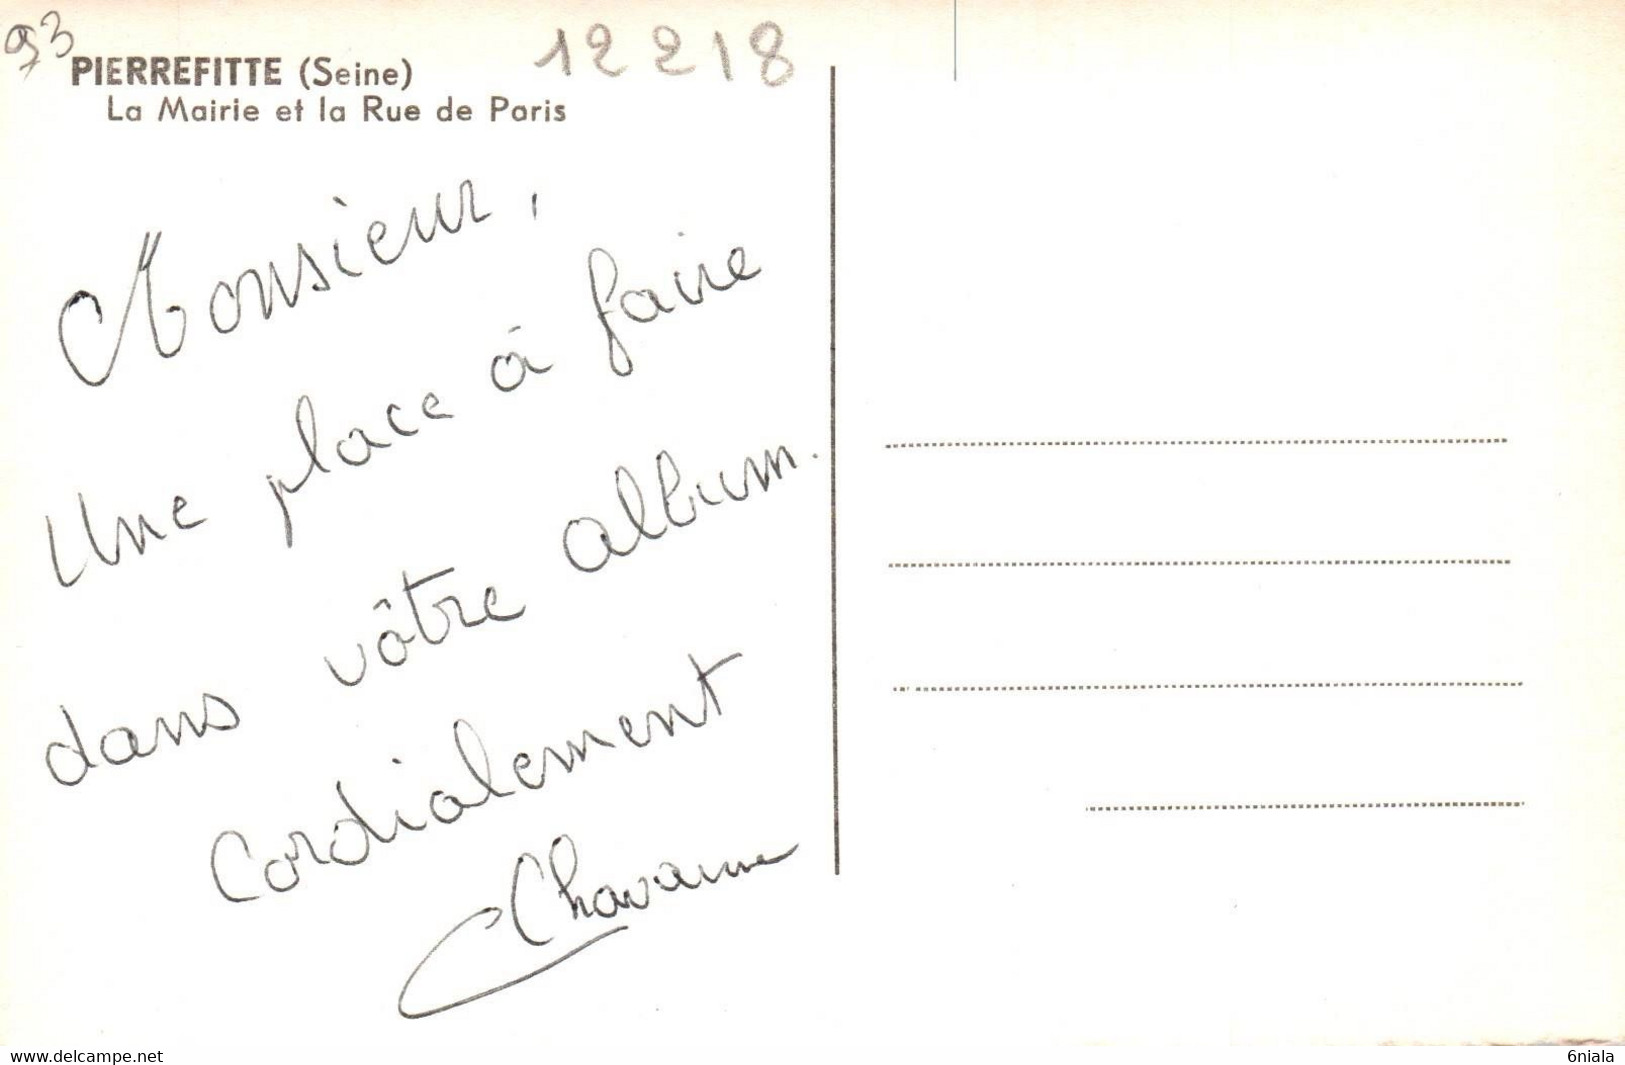 93
12218
PIERREFITTE (Seine)
La Mairie et la Rue de Paris
Monsieur,
Une place à faire
dans vôtre album.
Cordialement
Chavanne
www.delcampe.net
6niala